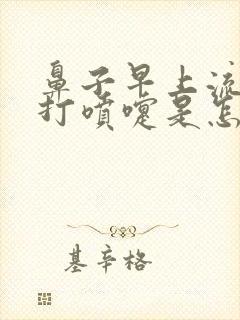 鼻子早上流
打喷嚏是怎
基辛格